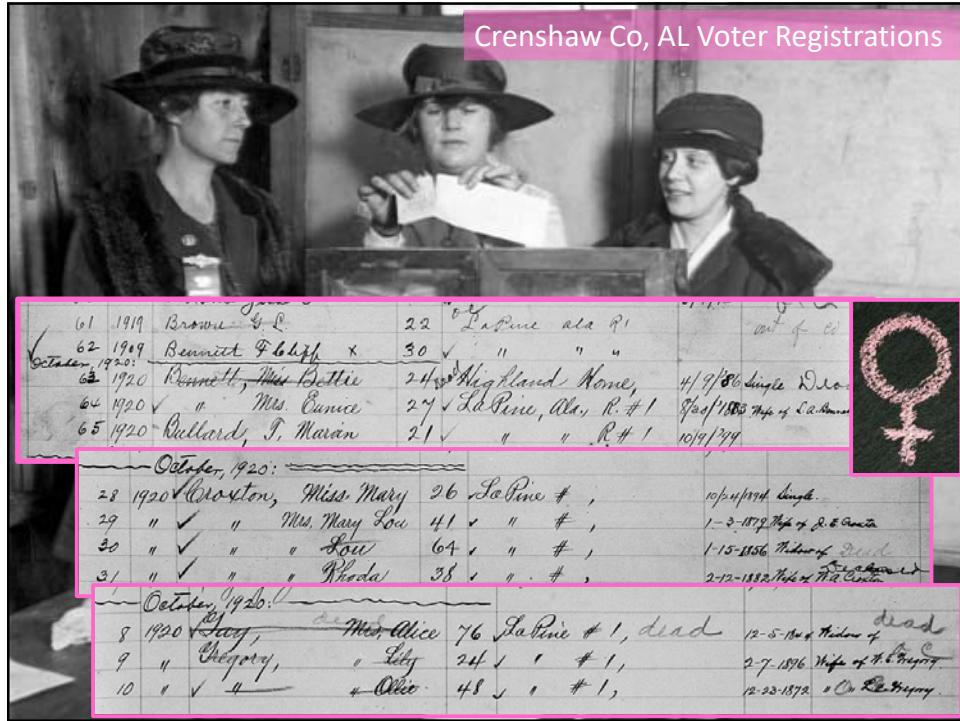 Crenshaw Co, AL Voter Registrations
61 1919 Brown G L 22 LaPine ala R1 out of co
62 1909 Bennett F Cliff x 30 ✓ " " "
October, 1920:
63 1920 Bennett, Miss Bettie 24 Highland Home, 4/9/'86 Single Dead
64 1920 ✓ " Mrs. Eunice 27 ✓ LaPine, Ala, R.#1 Wife of L.A. Bennett
65 1920 Bullard, T. Marvin 21 ✓ " " R#1 10/9/'99
October, 1920:
28 1920 ✓ Croxton, Miss Mary 26 ✓ LaPine #, 10/24/1894 Single.
29 " ✓ " Mrs. Mary Lou 41 ✓ " #, 1-3-1879 Wife of J.E. Croxton
30 " ✓ " " Lou 64 ✓ " #, 1-15-1856 Widow of Dead
31 " ✓ " " Rhoda 38 ✓ " #, 2-12-1882 Wife of W.A. Croxton Deceased
October, 1920:
8 1920 ✓ Guy, dead Mrs. Alice 76 ✓ LaPine #1, dead Widow of dead
9 " Gregory, " Lily 24 ✓ " #1, 2-7-1896 Wife of Gregory
10 " ✓ " " Ollie 48 ✓ " #1, 12-23-1872 " Gregory